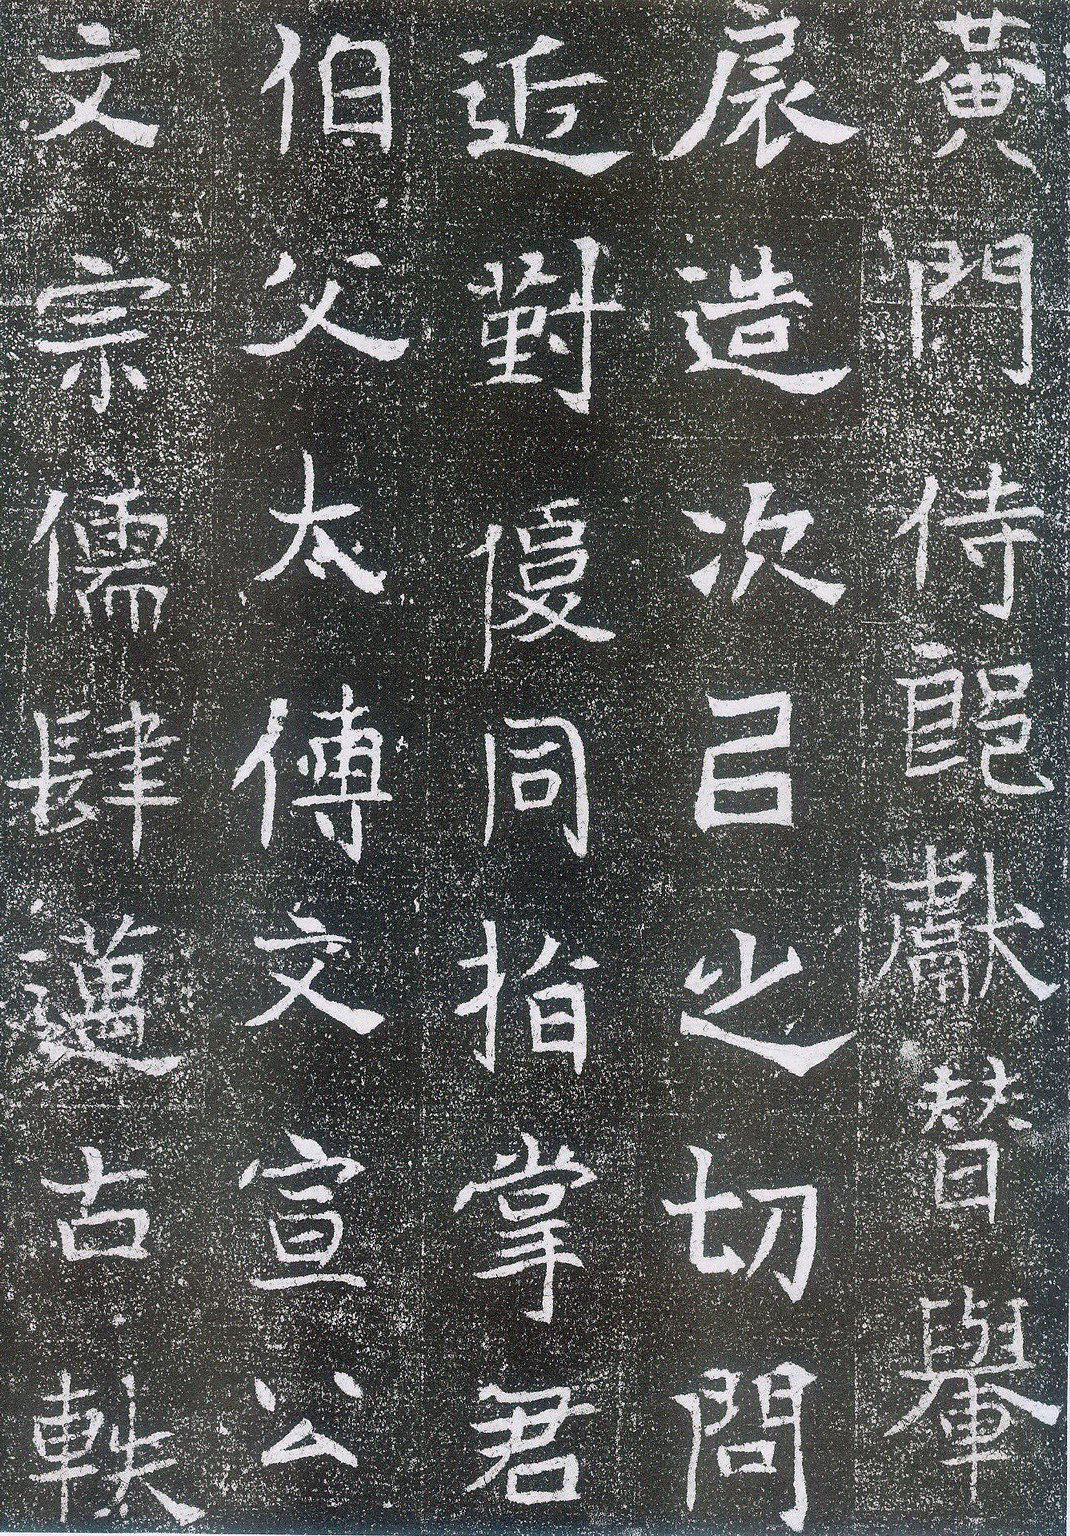 黃門侍郎獻替轝
扆造次己之切問
近對優同指掌君
伯父太傅文宣公
文宗儒肆邁古軼